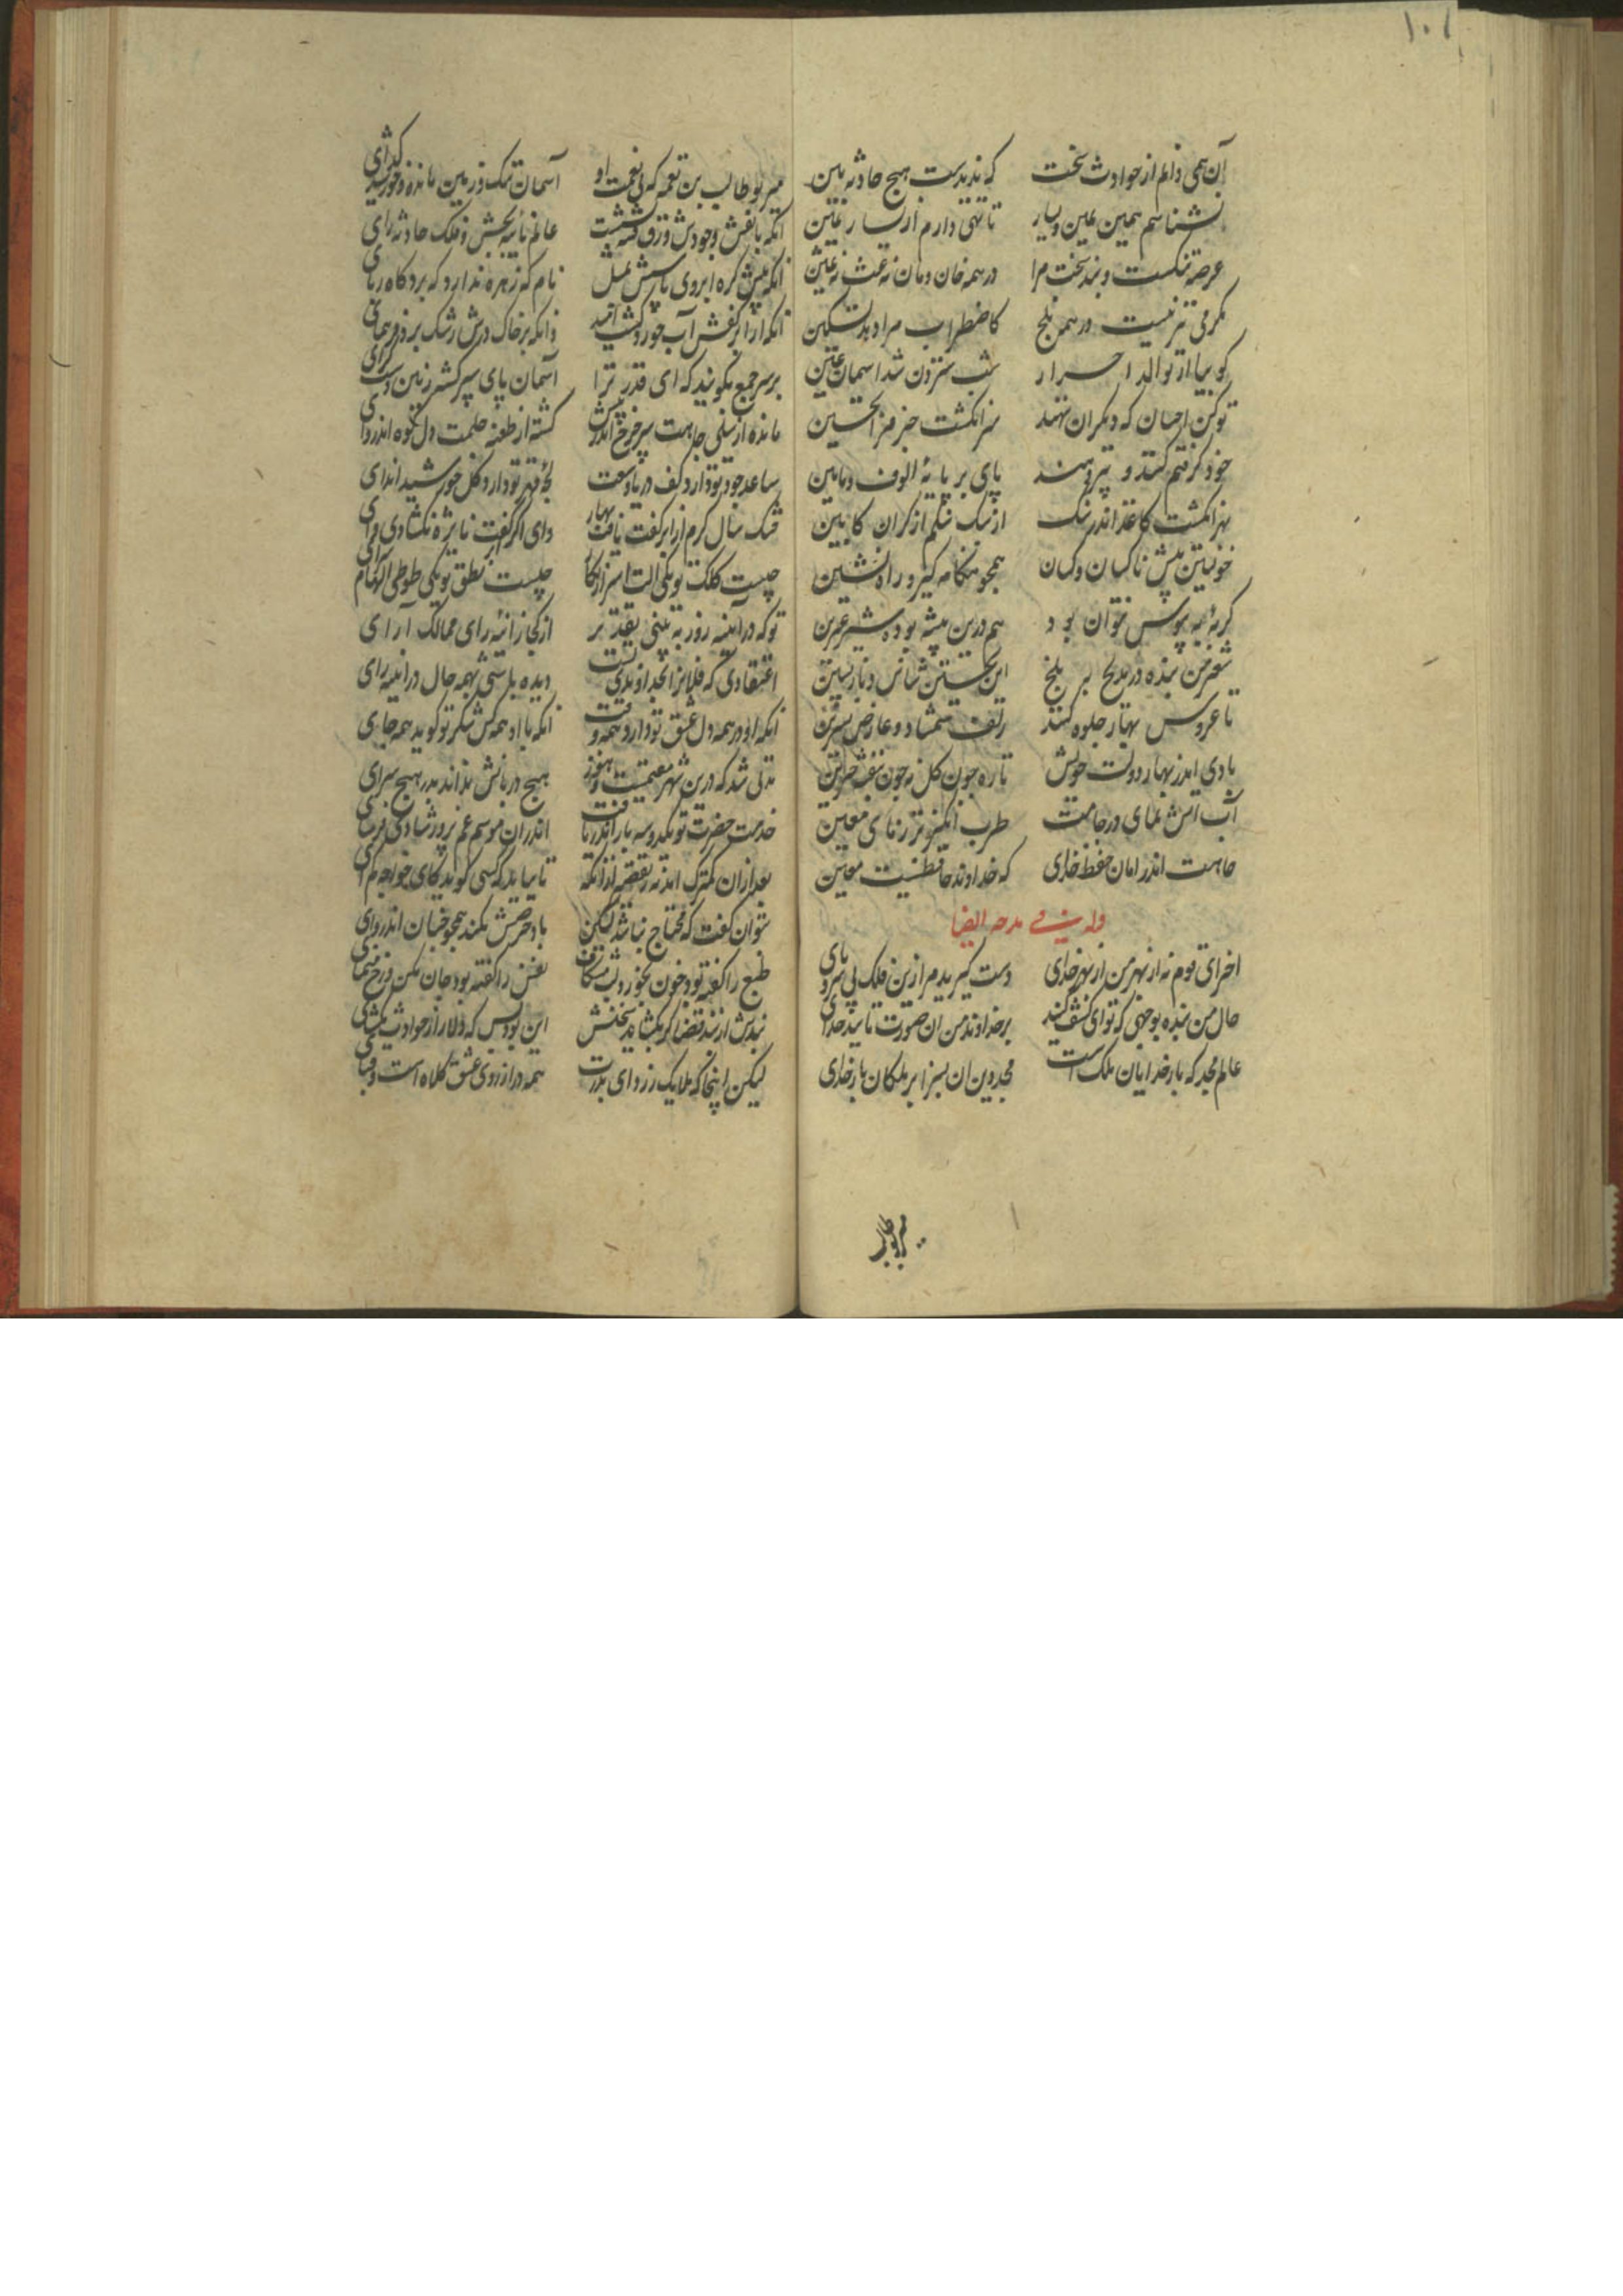 ۱۰۱
آن همی دانم از حوادث سخت که ندیدست هیچ حادثه بین
نشناسم همین یمین و یسار تا تهی دارم از یسار یمین
عرصه تنکست و بند سخت مرا در همه خان ومان نه غث نه
مکرمی نیست در همه بلخ کاضطراب مرا دهد تسکین
کوییا از توالد احرار شب سترون شد اسمان عنین
تو کن احسان که دیکران نهند سر انکشت جز
خود کرفتم کنند و نیز دهند پای بر پایهٔ الوف و مایین
سر انکشت کاغذ اندر نیک از یک شکم از کران کابین
خویشتن پیش ناکسان و کسان همچو هنکامه کیر و راه نشین
کربهٔ بید پوس نتوان بود هم درین بیشه بوده شیر عرین
شعر من بنده در مدیح بر بلخ این نخستین شناس و باز پسین
تا عروس بهار جلوه کنند زلف شمشاد و عارض نسرین
بادی اندر بهار دولت خویش تازه چون کل نه چون بنفشه حزین
آب آتش نمای در جامت طرب انکیزتر ز
جاهت اندر امان حفظ خدای که خداوند حافظیست معین
وله فی مدحه ایضا
اخر ای قوم نه از بهر من از بهر خدای دست کیرید مرا زین فلک بی سر و پای
حال من بنده بوجهی که توان کشف کنید بر خداوند من ان صورت تایید خدای
عالم مجد که بار خدایان ملک است مجد دین ان بسزا بر ملکان بار خدای
میر بوطالب
میر بوطالب بن نعمه که بی نعمت او آسمان تنک و زمین مانده و خورشید کدای
آنکه با نقش وجودش ورق فتنه بشست عالم نایبه بخش و فلک حادثه زای
آنکه پیش کره ابروی باسش بمثل نام که زهره ندارد که برد کاه ربای
آنکه از ابر کفش آب خورد کشت امید وانکه بر خاک درش رشک برد فر همای
بر سر جمع بکویند که ای قدر ترا آسمان پای سپر کشته زمین دست کرای
مانده از سیلی جاهت سر چرخ اندر پیش کشته از طعنه حلمت دل کوه اندر وای
ساعد جود تو دارد کف دریا وسعت لجهٔ قهر تو دارد کل خورشید اندای
خشک سال کرم از ابر کفت یافت بهار وای اکر کفت نایژه نکشادی وای
چیست کلک تو یکی لت اسرار نکار چیست نطق تو یکی طوطی الهام سرای
تو که در آینه روز به بینی بقدر از کجا زاینه رای ممالک آرای
اعتقادی که فلانرا بخداوندیت دیده باشی بهمه حال در اینه رای
آنکه او در همه دل عشق تو دارد همه وقت آنکه با او همه کس شکر تو کوید همه جای
مدتی شد که درین شهر مقیمست و هنوز هیچ دربانش نداند بدر هیچ سرای
خدمت حضرت تو یکدو سه بار اندر یافت اندران موسم غم پرور شادی فرسای
بعد ازان کمترک اید نه ز تقصیر از آنکه تا نباید که کسی کوید کای خواجه
نتوان کفت که محتاج نباشد لیکن باد حرصش نکند همچو خسان اندروای
طبع را کفته بود خون خور و لب مکشای نفس را کفته بود جان کن و رخ منمای
بندش از بند قضا کر بکشاید سخنش این بود پس که دلا راز حوادث مکشای
لیکن اینجا که ملایک ز ردای پدرت همه در ارزوی عشق کلاه است و قبای